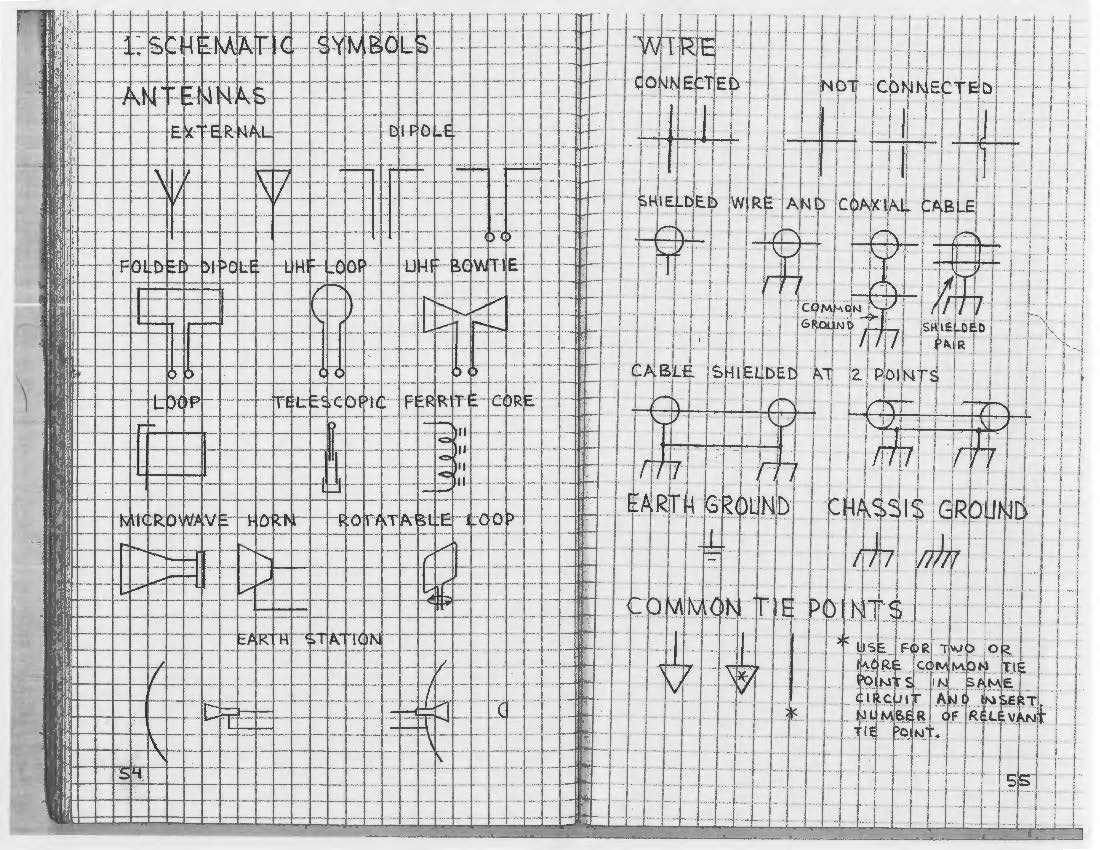 1. SCHEMATIC SYMBOLS
ANTENNAS
EXTERNAL DIPOLE
FOLDED DIPOLE UHF LOOP UHF BOWTIE
LOOP TELESCOPIC FERRITE CORE
MICROWAVE HORN ROTATABLE LOOP
EARTH STATION
54
WIRE
CONNECTED NOT CONNECTED
SHIELDED WIRE AND COAXIAL CABLE
COMMON
GROUND
SHIELDED
PAIR
CABLE SHIELDED AT 2 POINTS
EARTH GROUND CHASSIS GROUND
COMMON TIE POINTS
* USE FOR TWO OR
MORE COMMON TIE
POINTS IN SAME
CIRCUIT AND INSERT
NUMBER OF RELEVANT
TIE POINT.
*
*
55